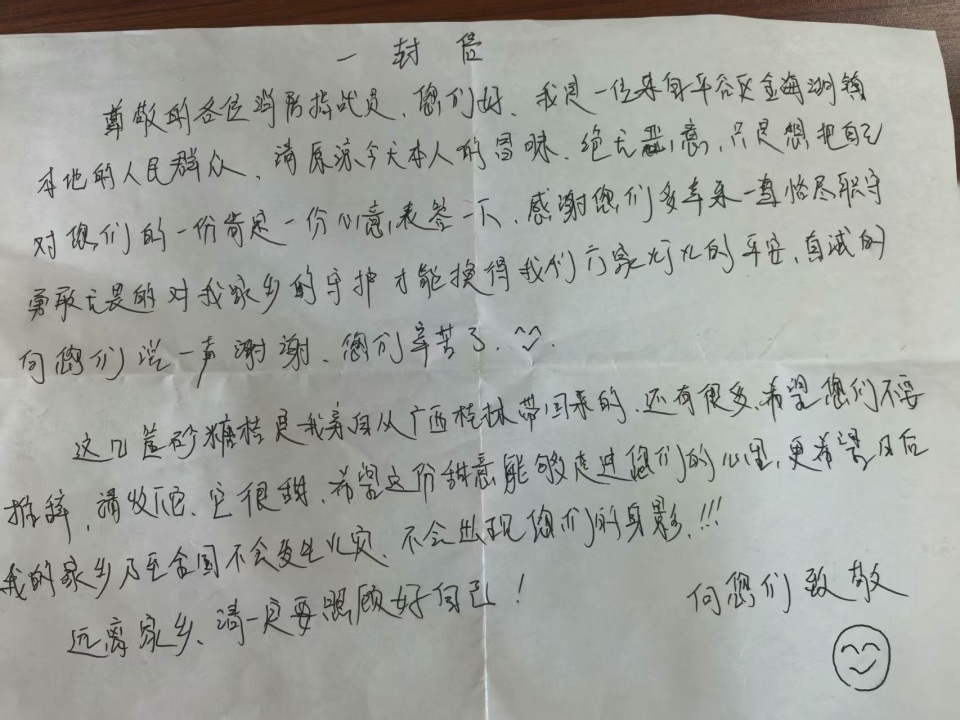 一封信
尊敬的各位消防指战员、您们好、我是一位来自平谷区金海湖镇
本地的人民群众、请原谅今天本人的冒昧、绝无恶意、只是想把自己
对您们的一份肯定一份心意表答一下、感谢您们多年来一直恪尽职守
勇敢无畏的对我家乡的守护才能换得我们万家灯火的平安、真诚的
向您们说一声谢谢、您们辛苦了.
这几筐砂糖桔是我亲自从广西桂林带回来的、还有很多、希望您们不要
推辞,请收下它、它很甜、希望这份甜意能够走进您们的心里,更希望日后
我的家乡乃至全国不会发生火灾、不会出现您们的身影!!!
远离家乡、请一定要照顾好自己!
向您们致敬